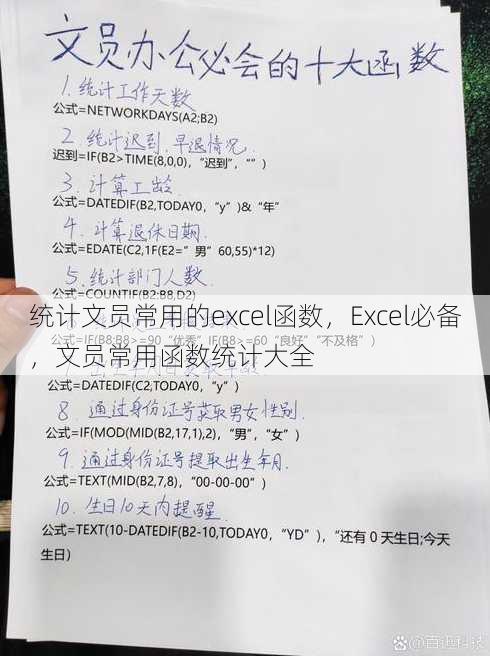 文员办公必会的十大函数
1.统计工作天数
公式=NETWORKDAYS(A2;B2)
2.统计迟到.早退情况.
迟到=IF(B2>TIME(8,0,0),“迟到”,“”)
3.计算工龄.
公式=DATEDIF(B2,TODAY0,“y”)&“年”
4.计算退休日期.
公式=EDATE(C2,1F(E2=”男”60,55)*12)
5.统计部门人数.
公式=COUNTIF(B2:B8,D2)
统计文员常用的excel函数，Excel必备
，文员常用函数统计大全
公式=DATEDIF(C2,TODAY0,“y”)
8.通过身份证号获取男女性别.
公式=IF(MOD(MID(B2,17,1),2),“男”,“女”)
9.通过身份证号提取出生年月.
公式=TEXT(MID(B2,7,8),“00-00-00”)
10.生日10天内提醒
公式=TEXT(10-DATEDIF(B2-10,TODAY0,“YD”),“还有 0 天生日;今天
生日)